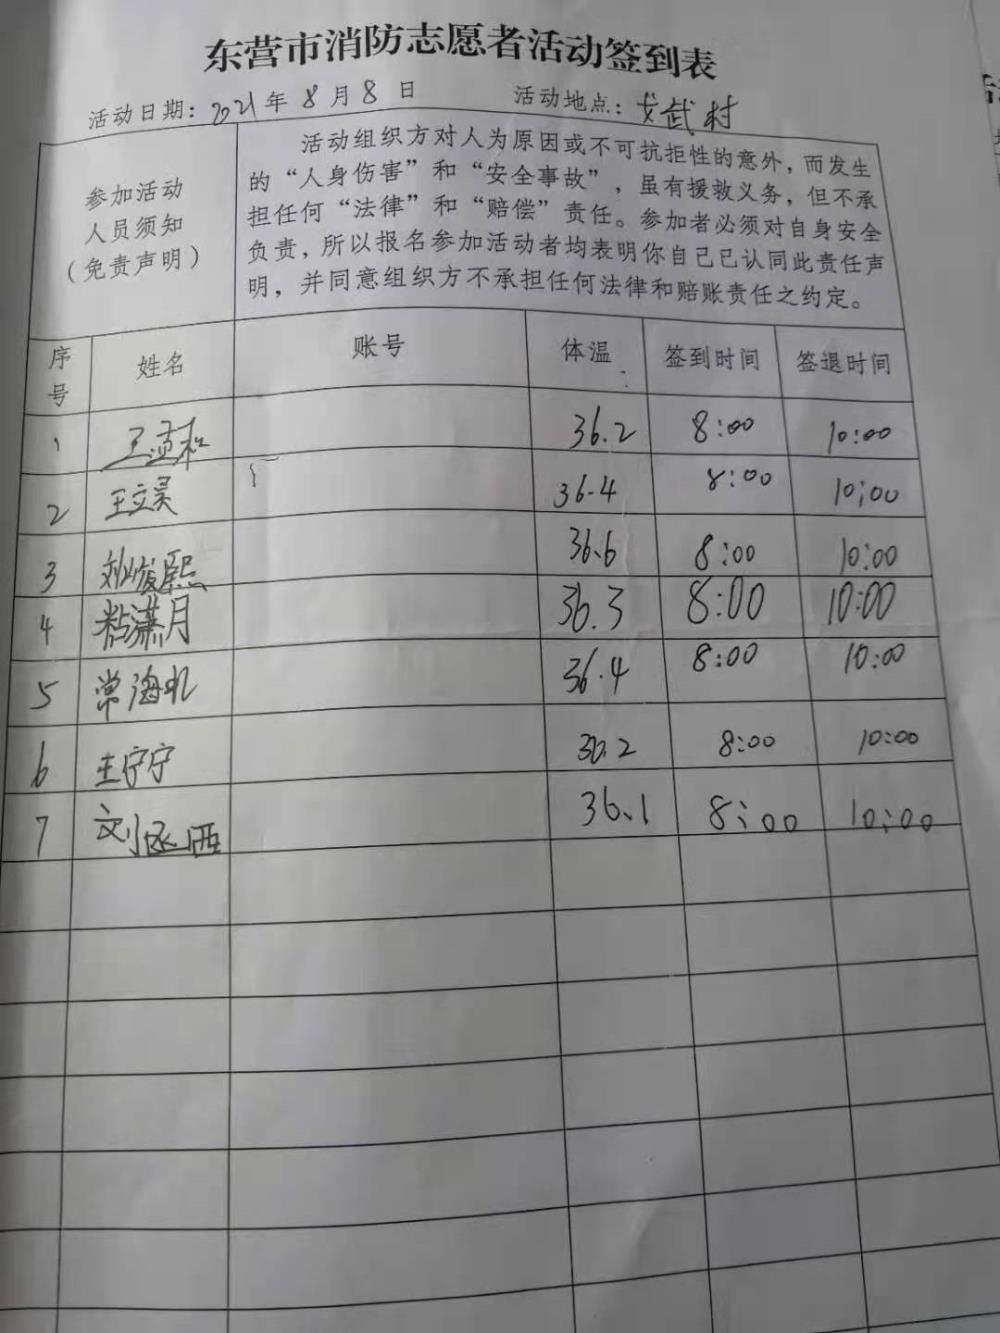 东营市消防志愿者活动签到表
活动日期：2021年8月8日 活动地点：武村
参加活动
人员须知
（免责声明）
活动组织方对人为原因或不可抗拒性的意外，而发生
的“人身伤害”和“安全事故”，虽有援救义务，但不承
担任何“法律”和“赔偿”责任。参加者必须对自身安全
负责，所以报名参加活动者均表明你自己已认同此责任声
明，并同意组织方不承担任何法律和赔账责任之约定。
序号 姓名 账号 体温 签到时间 签退时间
1 王孟和 36.2 8:00 10:00
2 王立昊 36.4 8:00 10:00
3 刘俊熙 36.6 8:00 10:00
4 粘潇月 36.3 8:00 10:00
5 常海 36.4 8:00 10:00
6 王宁宁 36.2 8:00 10:00
7 刘丞西 36.1 8:00 10:00